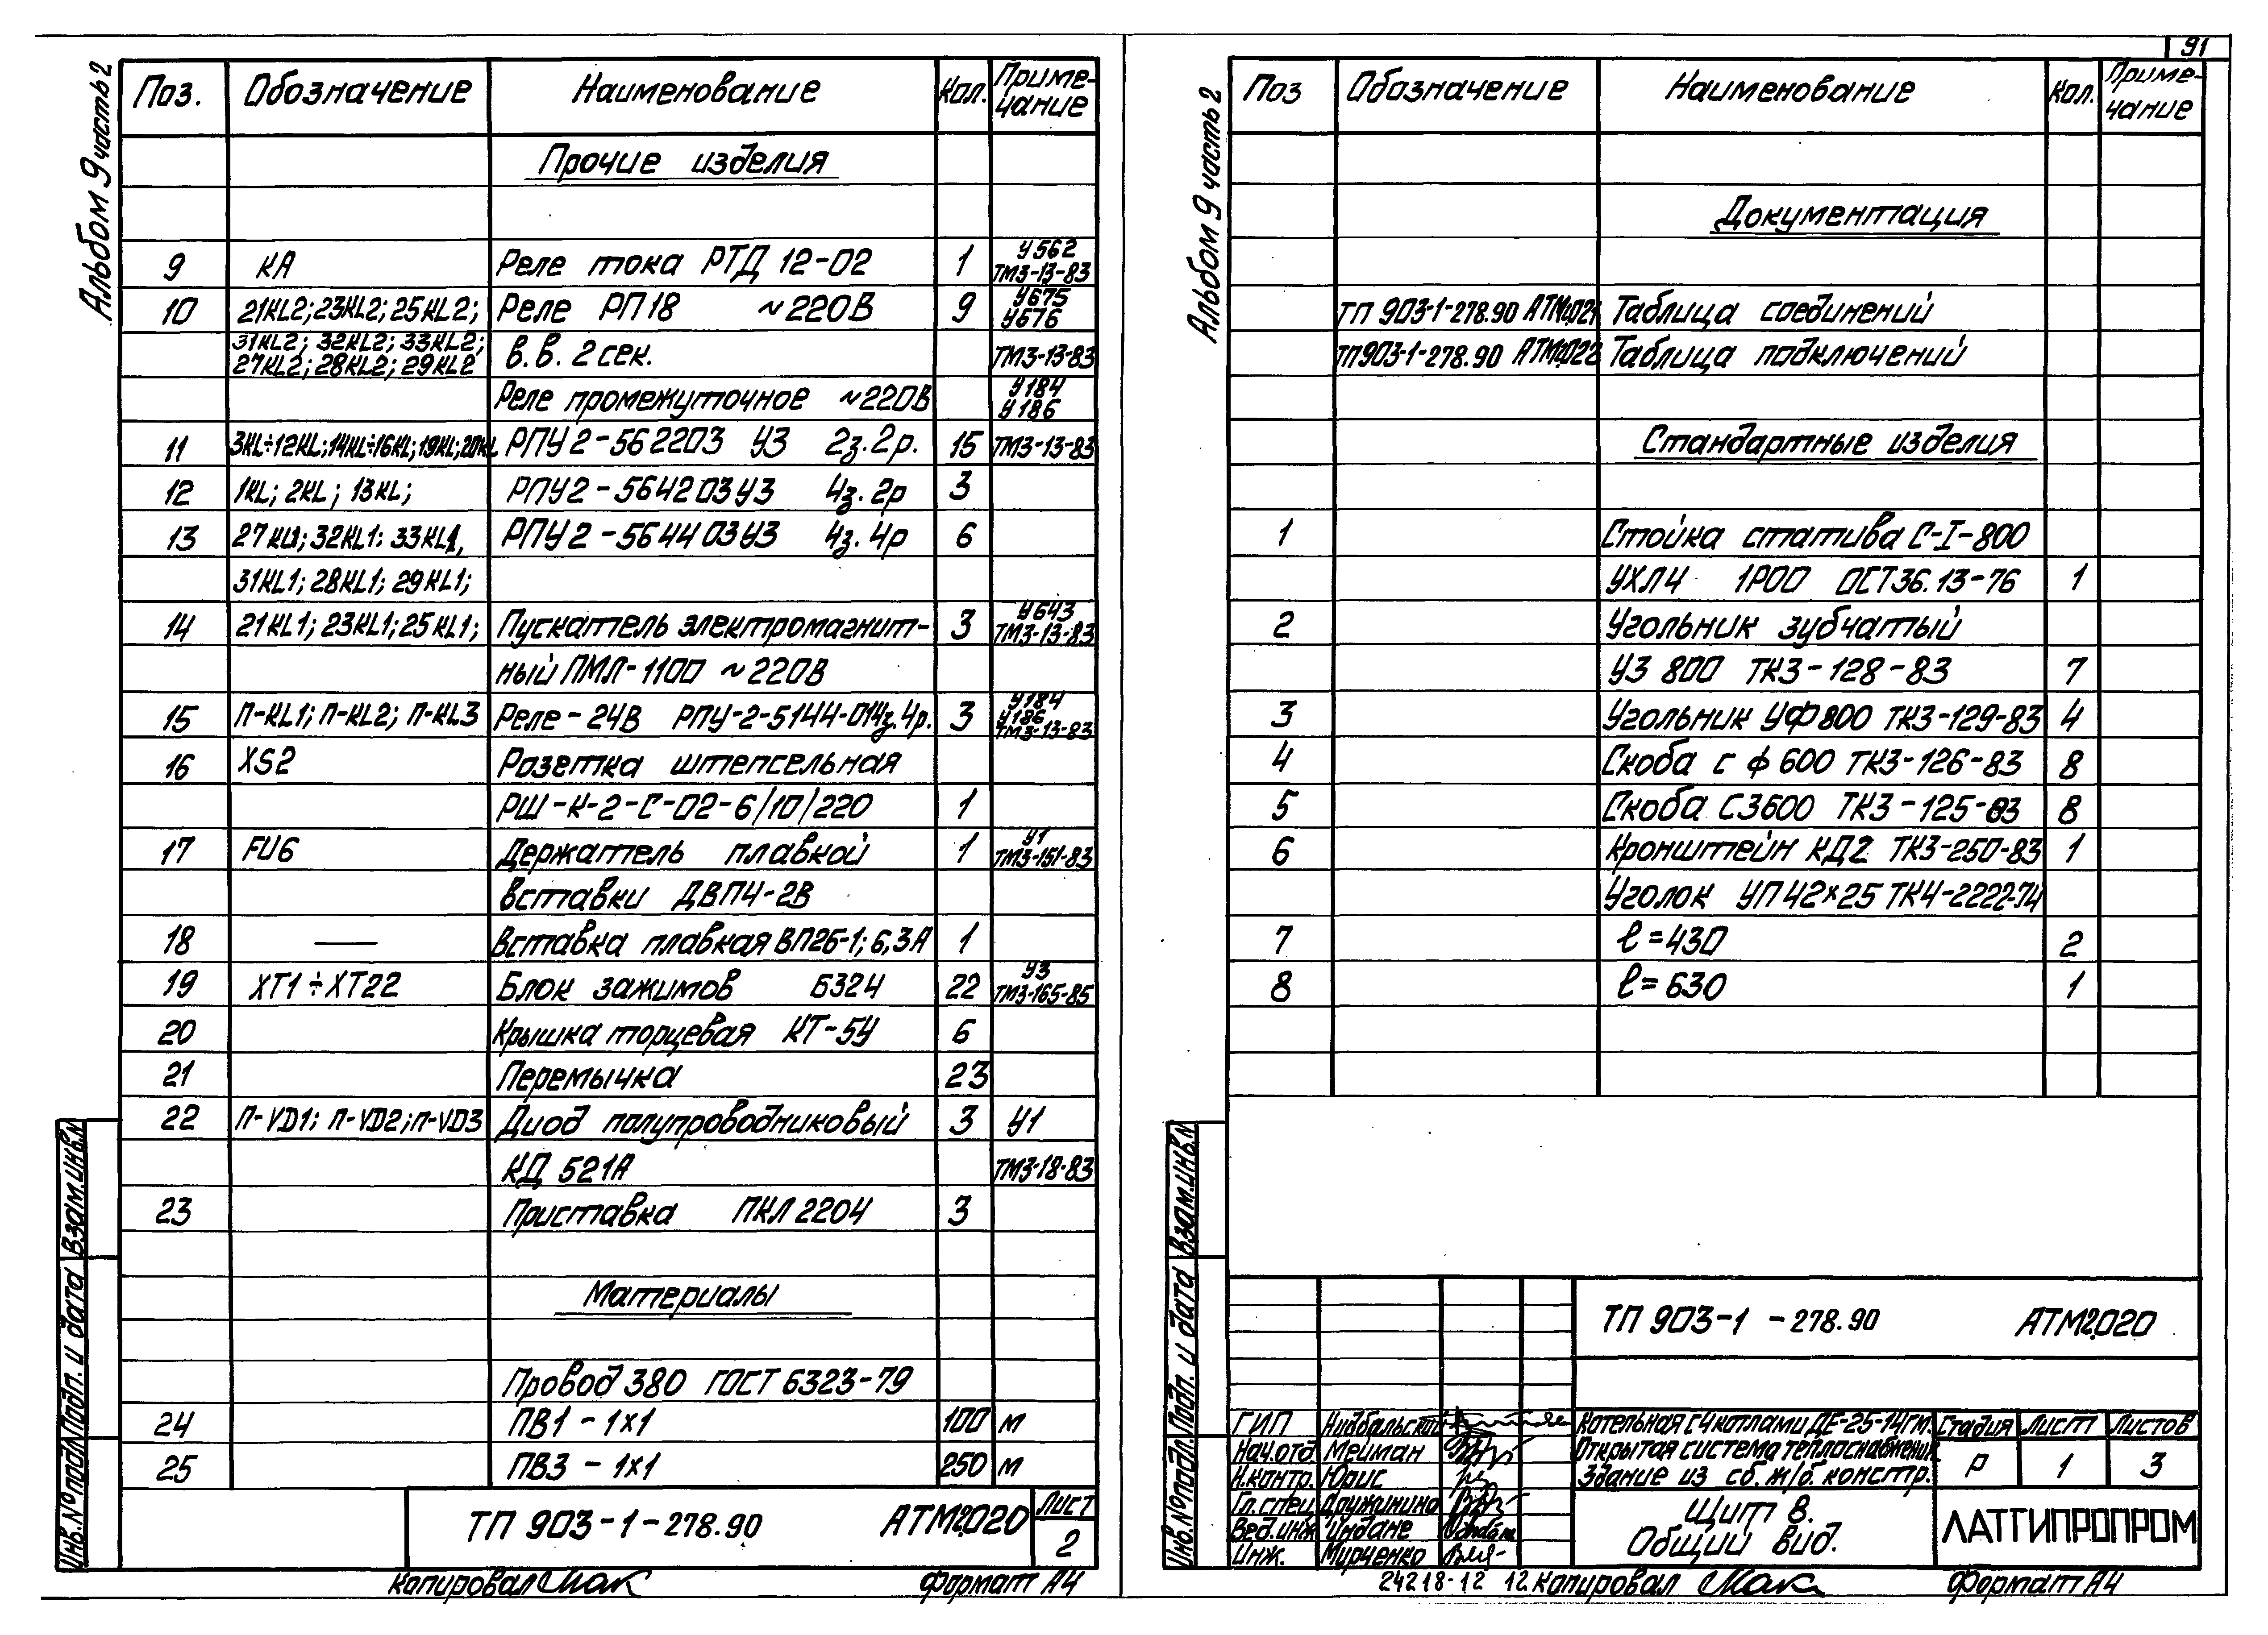 91
Альбом 9 часть 2
Поз. Обозначение Наименование Кол. Приме-
чание
Прочие изделия
9 КА Реле тока РТД 12-02 1 У562
ТМ3-13-83
10 21KL2; 23KL2; 25KL2; Реле РП18 ~220В 9 У675
У676
31KL2; 32KL2; 33KL2;
27KL2; 28KL2; 29KL2 в.в. 2 сек. ТМ3-13-83
Реле промежуточное ~220В У184
У186
11 3KL÷12KL; 14KL÷16KL; 19KL; 20KL РПУ2-562203 У3 2з.2р. 15 ТМ3-13-83
12 1KL; 2KL; 13KL; РПУ2-564203У3 4з.2р 3
13 27KL1; 32KL1; 33KL1, РПУ2-564403У3 4з.4р 6
31KL1; 28KL1; 29KL1;
14 21KL1; 23KL1; 25KL1; Пускатель электромагнит- 3 У643
ТМ3-13-83
ный ПМЛ-1100 ~220В
15 П-KL1; П-KL2; П-KL3 Реле-24В РПУ-2-5144-014з.4р. 3 У184
У186
ТМ3-13-83
16 XS2 Розетка штепсельная
РШ-К-2-С-02-6/10/220 1
17 FU6 Держатель плавкой 1 У1
ТМ3-151-83
вставки ДВП4-2В
18 — Вставка плавкая ВП2б-1; 6,3А 1
19 XT1÷XT22 Блок зажимов Б324 22 У3
ТМ3-165-85
20 Крышка торцевая КТ-5У 6
21 Перемычка 23
22 П-VD1; П-VD2; П-VD3 Диод полупроводниковый 3 У1
КД 521А ТМ3-18-83
23 Приставка ПКЛ 2204 3
Материалы
Провод 380 ГОСТ 6323-79
24 ПВ1 - 1х1 100 м
25 ПВ3 - 1х1 250 м
ТП 903-1-278.90 АТМ2.020 Лист
2
Взам.инв.N
Подп. и дата
Инв.№подл.
Копировал
Формат А4
Альбом 9 часть 2
Поз Обозначение Наименование Кол. Приме-
чание
Документация
ТП 903-1-278.90 АТМ2.021 Таблица соединений
ТП 903-1-278.90 АТМ2.022 Таблица подключений
Стандартные изделия
1 Стойка статива С-I-800
УХЛ4 1Р00 ОСТ36.13-76 1
2 Угольник зубчатый
УЗ 800 ТК3-128-83 7
3 Угольник УФ800 ТК3-129-83 4
4 Скоба с ф 600 ТК3-126-83 8
5 Скоба СЗ600 ТК3-125-83 8
6 Кронштейн КД2 ТК3-250-83 1
Уголок УП42х25 ТК4-2222-74
7 ℓ=430 2
8 ℓ=630 1
Взам.инв.N
Подп. и дата
Инв.№подл.
ТП 903-1 -278.90 АТМ2.020
ГИП
Нач.отд. Мейман
Н.контр. Юрис
Гл.спец. Дружинина
Вед.инж Индане
Инж. Мурченко
Котельная с 4 котлами ДЕ-25-14ГМ.
Открытая система теплоснабжения.
Здание из сб. ж/б. констр.
Стадия Лист Листов
Р 1 3
Щит 8.
Общий вид.
ЛАТГИПРОПРОМ
24218-12 12 Копировал
Формат А4